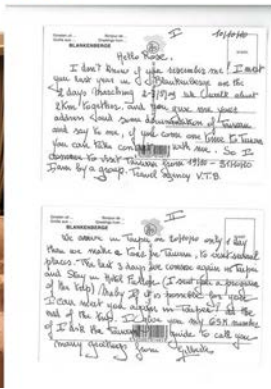 I
10/10/10
BLANKENBERGE
Hello Rose,
I don't know if you remember me! I meet
you last year in Blankenberge on the
2 days Marching We walk about
2Km together, and you give me your
address and some documentation of Taiwan
and say to me, if you come one time to Taiwan
you can take contact with me. So I
to visit Taiwan from 19/10 - 31/10/10
I am by a group. Travel Agency V.T.B.
II
BLANKENBERGE
We arrive in Taipei on 20/10/10 only 1 day
then we make a Tour for Taiwan, to visit several
places. The last 3 days we come again in Taipei
and stay in Hotel (I sent you a
of the trip) Maby if it is possible for you
I can meet you again in Taipei? at the
end of the trip. I give you my GSM number
of I ask the guide to call you
many greetings from